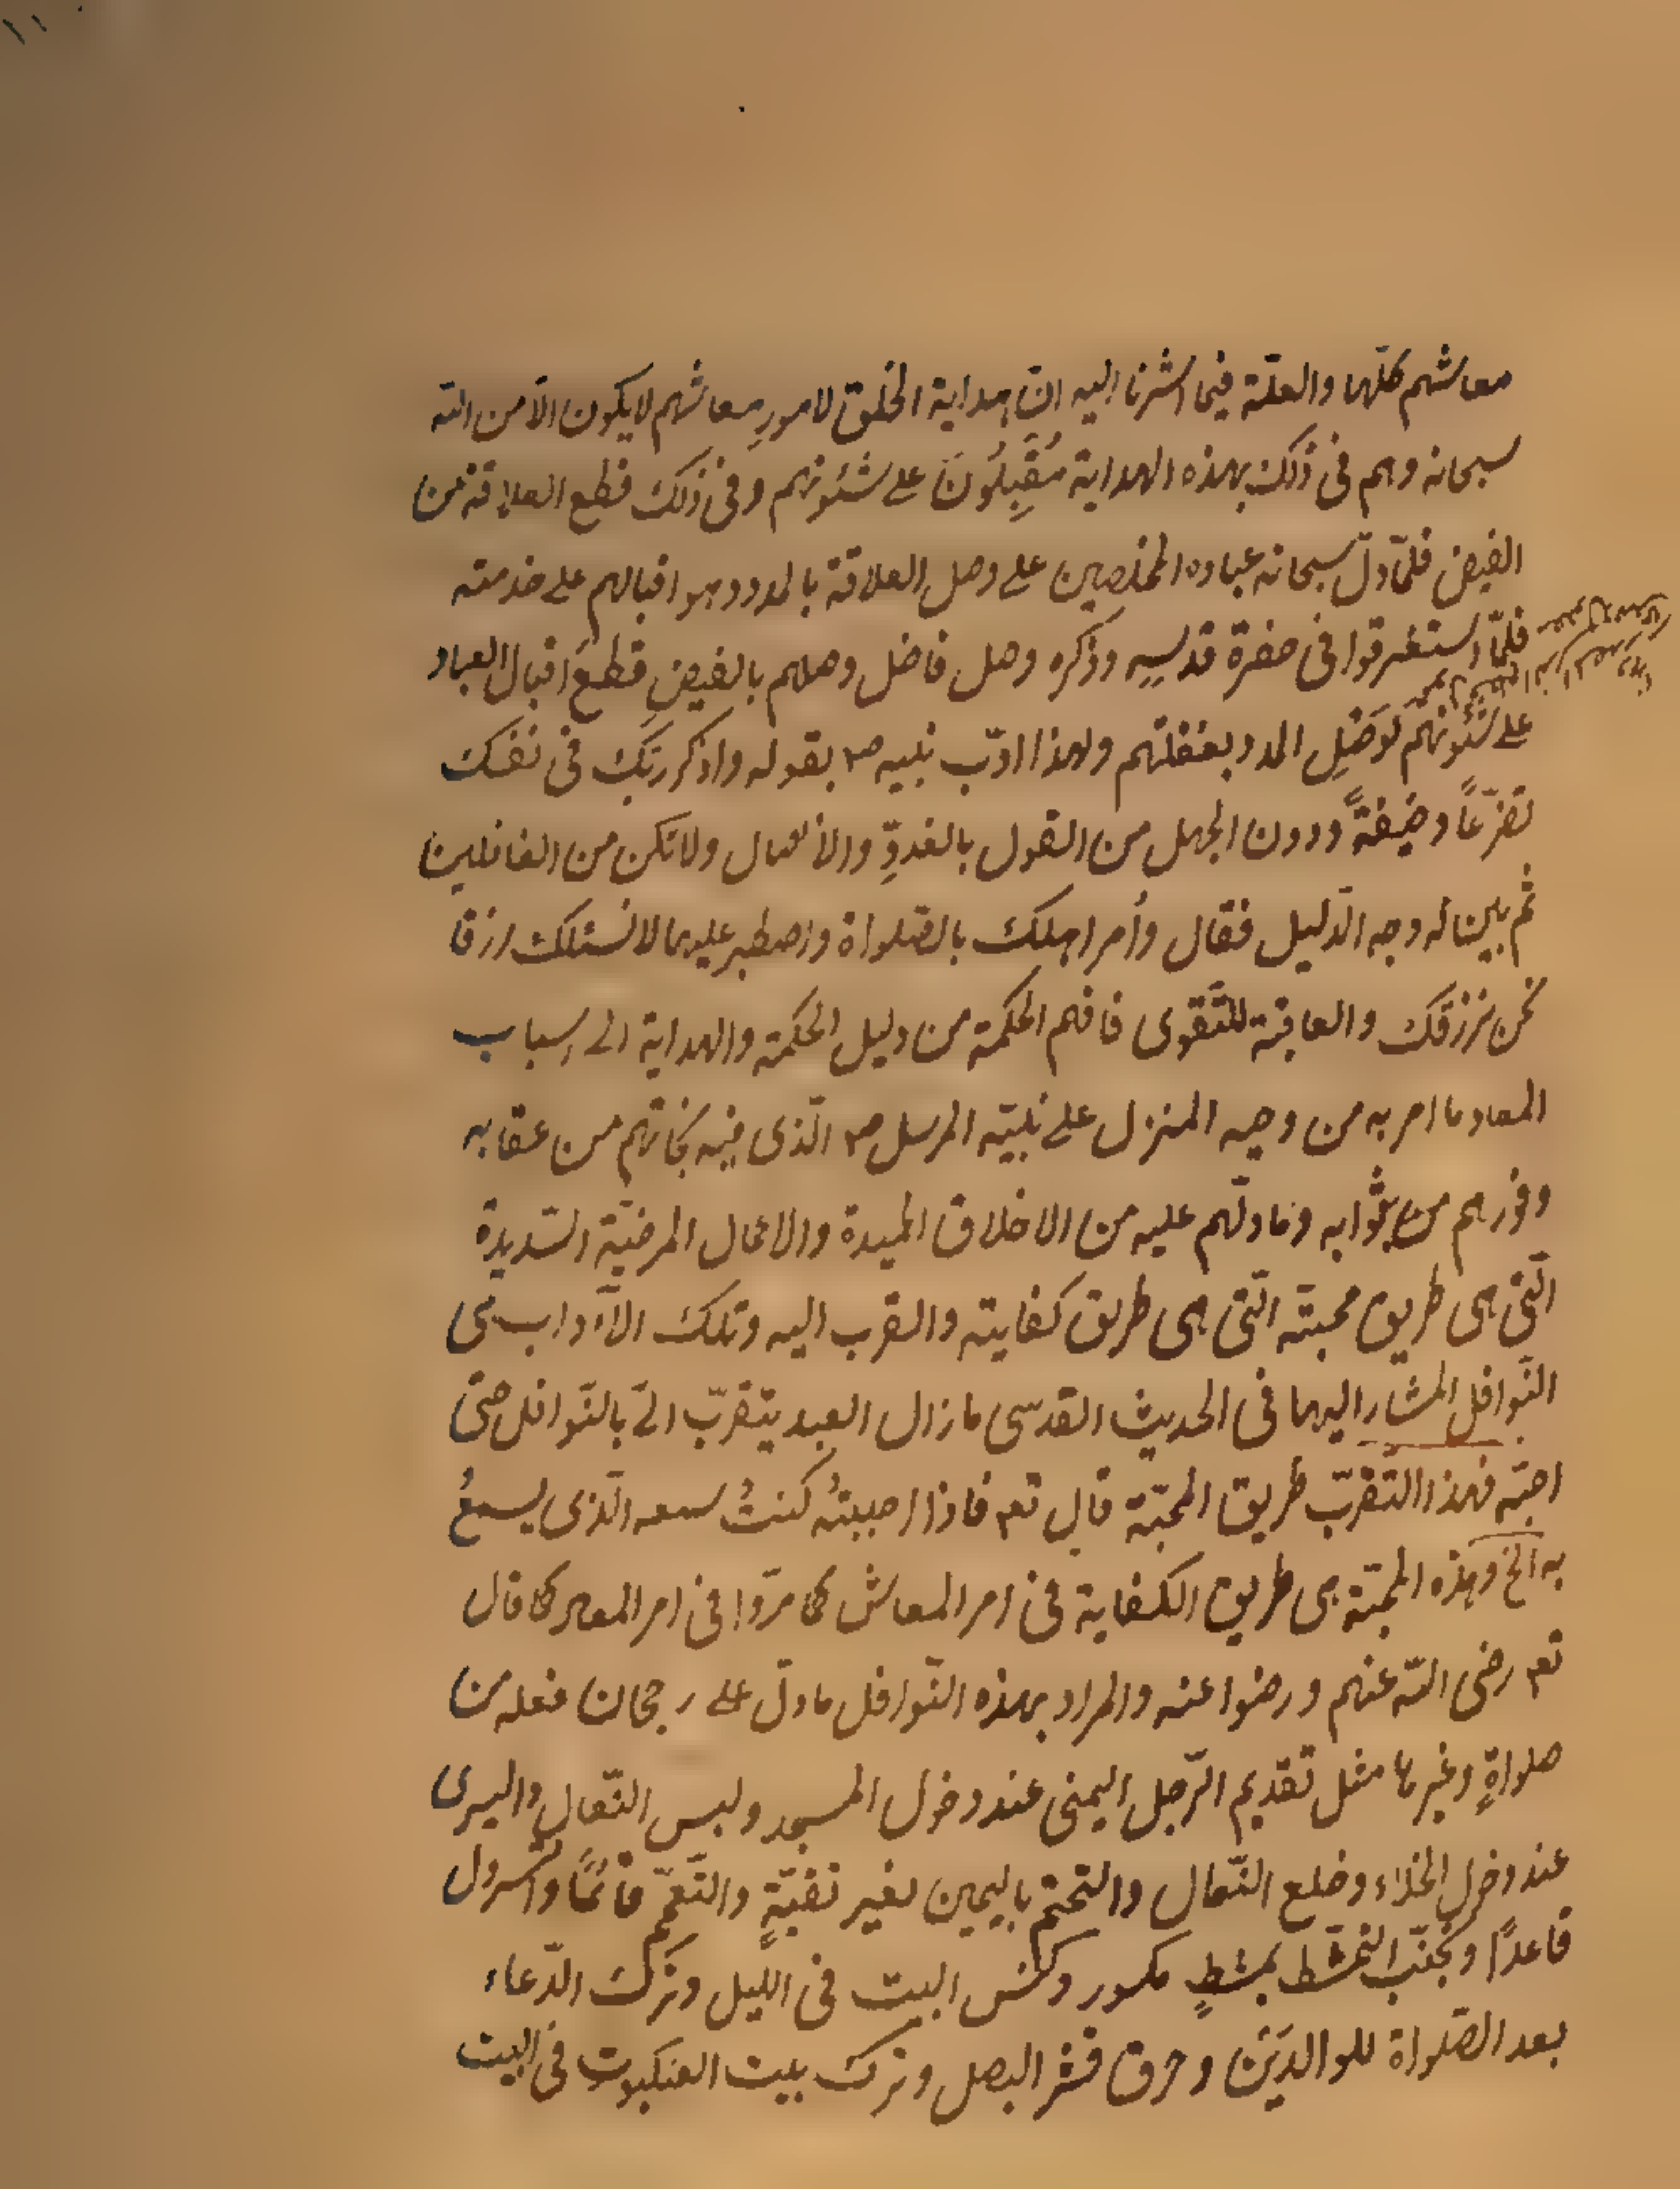 معاشهم كلّها والعلّة فيما اشرنا اليه انّ هداية الخلق لامورِ معاشهم لايكون الّا من اللّه
سبحانه وهم فى ذلك بهذه الهداية مُقبِلُونَ على شئونهم وفى ذلك قطع العلاقة من
الفيض فلمّا دلّ سبحانه عباده المخلصين على وصل العلاقة بالمدد وهو اقبالهم على خدمته
فلمّا استغرقوا فى حضرة قدسِهِ وذكره وصل فاضل وصلهم بالفيضِ قطعَ اقبال العباد
على شئونهم لوَصْلِ المدد بغفلتهم ولهذا ادّب نبيه ص بقوله واذكر ربّك فى نفسك
تضرّعاً وخيفةً ودون الجهل من القول بالغدوِّ والاٰصال ولاتكن من الغافلين
ثم بين له وجه الدّليل فقال وأمر اهلك بالصّلواة واصطبر عليها لانسئلك رزقا
نحن نرزقك والعاقبة للتّقوى فافهم الحكمة من دليل الحكمة والهداية الى اسباب
المعاد ما امر به من وحيه المنزل على نبيّه المرسل ص الّذى فيه نجاتهم من عقابه
وفوزهم من ثوابه وما دلّهم عليه من الاخلاق الحميدة والاعمال المرضيّة السّديدة
الّتى هى طريق محبتّه الّتى هى طريق كفايته والقرب اليه وتلك الآداب هى
النّوافل المشار اليها فى الحديث القدسى ما زال العبد يتقرّب الىّ بالنّوافل حتّى
احبّه فهذا التّقرّب طريق المحبّة قال تعه فاذا احببتُه كنتُ سمعه الّذى يسمعُ
به الخ وهذه المحبّة هى طريق الكفاية فى امر المعاش كما مرّوا فى امر المعاد كما قال
تعه رضى اللّه عنهم ورضوا عنه والمراد بهذه النّوافل ما دلّ على رجحان فعله من
صلواةٍ وغيرها مثل تقديم الرّجل اليمنى عند دخول المسجد ولبس النّعال واليسرى
عند دخول الخلاء وخلع النّعال والتختّم باليمين لغير تقيّةٍ والتّعمّم قائمًا والتسرول
قاعدًا وتجنّب التّمشّط بمشطٍ مكسور وكنس البيت فى الليل وترك الدّعاء
بعد الصّلواة للوالدَيْن وحرق قشر البصل وترك بيت العنكبوت فى البيت